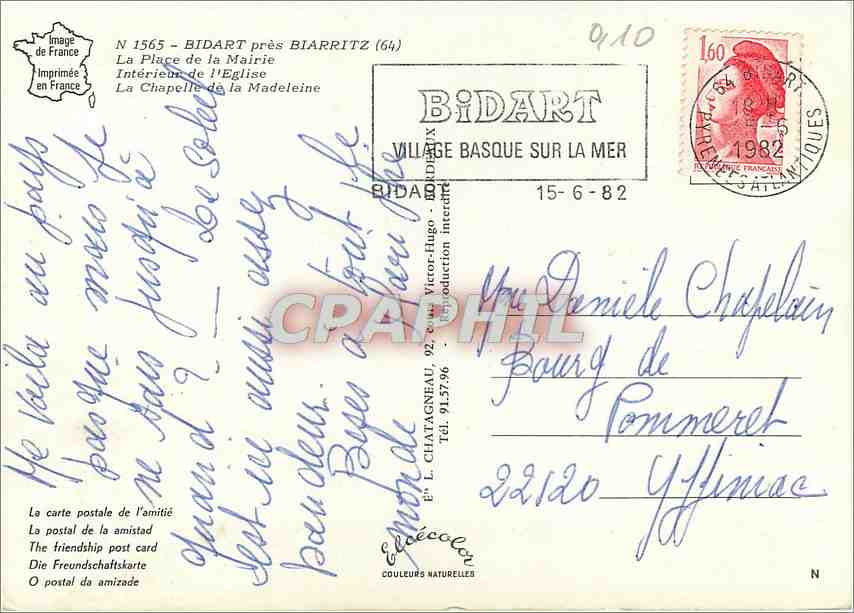 Image
de France
Imprimée
en France
N 1565 - BIDART près BIARRITZ (64)
La Place de la Mairie
Intérieur de l'Eglise
La Chapelle de la Madeleine
0,10
1,60
REPUBLIQUE FRANÇAISE
64 BIDART
18 H
15-6
1982
PYRENEES ATLANTIQUES
BiDART
VILLAGE BASQUE SUR LA MER
BIDART 15-6-82
Me voila au pays
basque mais je
ne sais jusqu'à
quand ? — Le soleil
est lui aussi assez
boudeur.
Bises à tout le
monde
Ets L. CHATAGNEAU, 92, cours Victor-Hugo - BORDEAUX
Tél. 91.57.96 - Reproduction interdite
CPAPHIL
Danièle Chapelain
Bourg de
Pommeret
22120 Yffiniac
La carte postale de l'amitié
La postal de la amistad
The friendship post card
Die Freundschaftskarte
O postal da amizade
Elcécolor
COULEURS NATURELLES
N